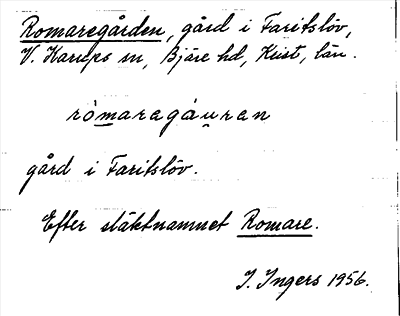 Romaregården, gård i Faritslöv,
V. Karups sn, Bjäre hd, Krist. län.
rómaregáu̯ren
gård i Faritslöv.
Efter släktnamnet Romare.
I. Ingers 1956.